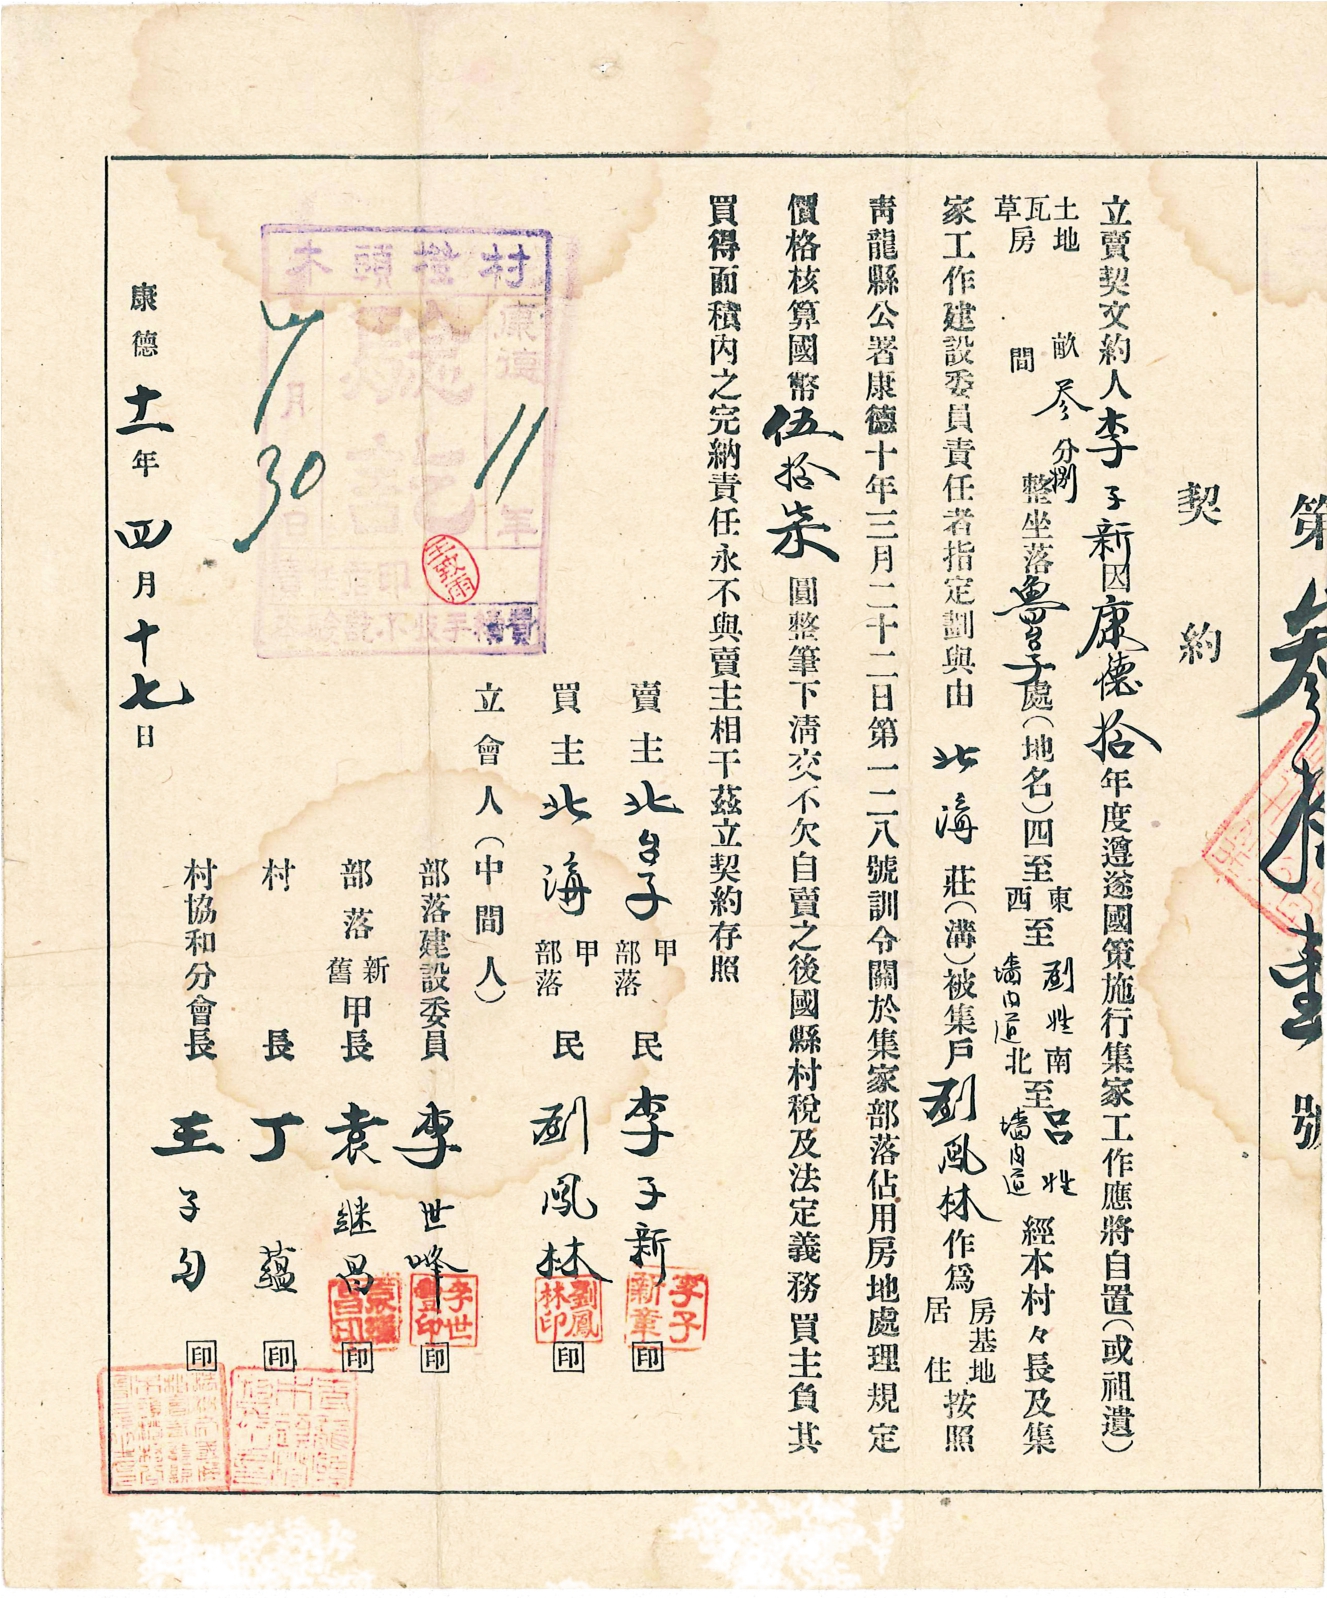 第叄拾壹號
契約
立賣契文約人李子新因康德拾年度遵遂國策施行集家工作應將自置(或祖遺)
土地 畝叄分捌
瓦房
草房 間
整坐落魯台子處(地名)四至東至劉姓南至呂姓
西至墻內道北至墻內道
經本村々長及集
家工作建設委員責任者指定劃與由北海莊(溝)被集戶劉鳳林作爲房基地
居住
按照
靑龍縣公署康德十年三月二十二日第一二八號訓令關於集家部落佔用房地處理規定
價格核算國幣伍拾柒圓整筆下清交不欠自賣之後國縣村稅及法定義務買主負其
買得面積內之完納責任永不與賣主相干茲立契約存照
賣主北台子甲
部落
民李子新 印
李子新章
買主北海甲
部落
民劉鳳林 印
劉鳳林印
立會人(中間人)
部落建設委員李世峰 印
李世豐印
部落新
舊
甲長袁継昌 印
袁繼昌印
村長丁蘊 印
村協和分會長王子勻 印
康德十一年四月十七日
木頭櫈村
康德11年
7月30日
王致雨